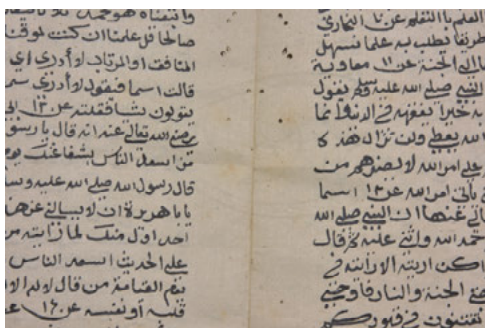 العلم باالتعلم عن ١٠ البخاري
طريقا يطلب به علما سهل
الى الجنة عن ١١ معاوية
النبي صلى الله عليه وسلم يقول
به خيرا يفقهه في الدين وانما
الله يعطي ولن تزال هذه
على امر الله لا يضرهم من
ياتي امر الله عن ١٢ اسما
عنهما ان النبي صلى الله
حمد الله واثنى عليه ثم قال
اكن اريته الا رايته في
الجنة والنار فاوحي
تفتنون في قبوركم
واتبعناه هو محمد ثلاثا
صالحا قد علمنا ان كنت لموقنا
المنافق او المرتاب لا ادري اي
قالت اسما فيقول لا ادري
يقولون شيا فقلته عن ١٣
رضي الله تعالى عنه انه قال يا رسول
من اسعد الناس بشفاعتك يوم
قال رسول الله صلى الله عليه وس
يا ابا هريرة ان لا يسالني عن
احد اول منك لما رايته من
على الحديث اسعد الناس
يوم القيامة من قال لا اله الا
قلبه او نفسه عن ١٤